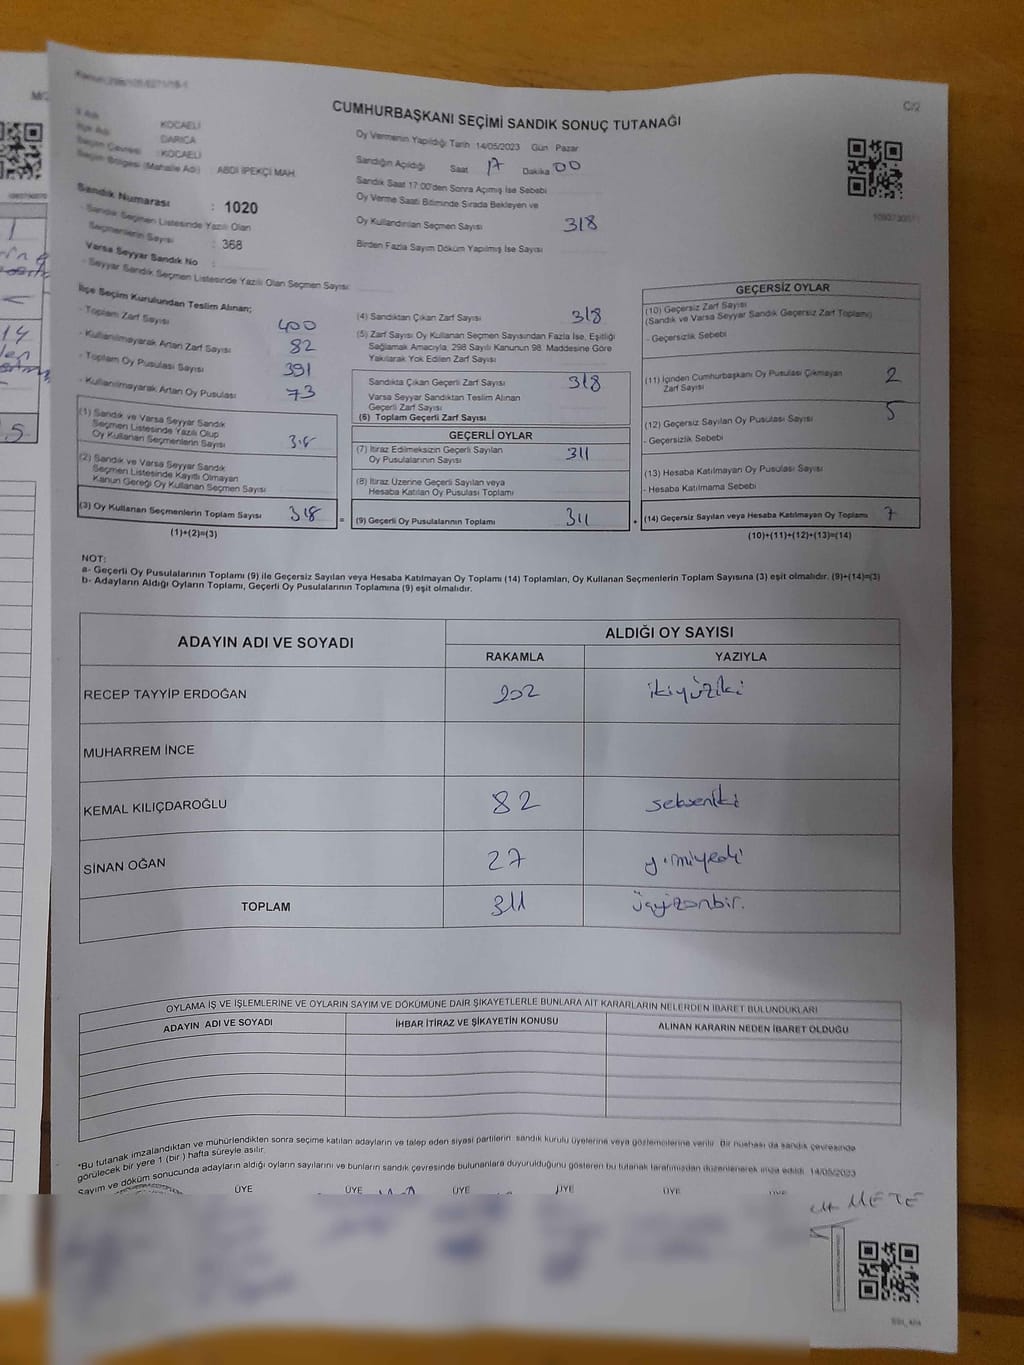 C/2
CUMHURBAŞKANI SEÇİMİ SANDIK SONUÇ TUTANAĞI
İl Adı KOCAELİ
İlçe Adı DARICA
Seçim Çevresi : KOCAELİ
Seçim Bölgesi (Mahalle Adı) : ABDİ İPEKÇİ MAH.
Sandık Numarası : 1020
- Sandık Seçmen Listesinde Yazılı Olan
Seçmenlerin Sayısı : 368
Varsa Seyyar Sandık No :
- Seyyar Sandık Seçmen Listesinde Yazılı Olan Seçmen Sayısı
Oy Vermenin Yapıldığı Tarih 14/05/2023 Gün Pazar
Sandığın Açıldığı Saat 17 Dakika 00
Sandık Saat 17:00'den Sonra Açımış İse Sebebi
Oy Verme Saati Bitiminde Sırada Bekleyen ve
Oy Kullandırılan Seçmen Sayısı 318
Birden Fazla Sayım Döküm Yapılmış İse Sayısı
İlçe Seçim Kurulundan Teslim Alınan;
- Toplam Zarf Sayısı 400
- Kullanılmayarak Artan Zarf Sayısı 82
- Toplam Oy Pusulası Sayısı 391
- Kullanılmayarak Artan Oy Pusulası 73
(1) Sandık ve Varsa Seyyar Sandık
Seçmen Listesinde Yazılı Olup
Oy Kullanan Seçmenlerin Sayısı 318
(2) Sandık ve Varsa Seyyar Sandık
Seçmen Listesinde Kayıtlı Olmayan
Kanun Gereği Oy Kullanan Seçmen Sayısı
(3) Oy Kullanan Seçmenlerin Toplam Sayısı 318 =
(1)+(2)=(3)
(4) Sandıktan Çıkan Zarf Sayısı 318
(5) Zarf Sayısı Oy Kullanan Seçmen Sayısından Fazla İse, Eşitliği
Sağlamak Amacıyla, 298 Sayılı Kanunun 98. Maddesine Göre
Yakılarak Yok Edilen Zarf Sayısı
Sandıkta Çıkan Geçerli Zarf Sayısı 318
Varsa Seyyar Sandıktan Teslim Alınan
Geçerli Zarf Sayısı
(6) Toplam Geçerli Zarf Sayısı
GEÇERLİ OYLAR
(7) İtiraz Edilmeksizin Geçerli Sayılan
Oy Pusulalarının Sayısı 311
(8) İtiraz Üzerine Geçerli Sayılan veya
Hesaba Katılan Oy Pusulası Toplamı
(9) Geçerli Oy Pusulalarının Toplamı 311 +
GEÇERSİZ OYLAR
(10) Geçersiz Zarf Sayısı
(Sandık ve Varsa Seyyar Sandık Geçersiz Zarf Toplamı)
- Geçersizlik Sebebi
(11) İçinden Cumhurbaşkanı Oy Pusulası Çıkmayan
Zarf Sayısı 2
(12) Geçersiz Sayılan Oy Pusulası Sayısı 5
- Geçersizlik Sebebi
(13) Hesaba Katılmayan Oy Pusulası Sayısı
- Hesaba Katılmama Sebebi
(14) Geçersiz Sayılan veya Hesaba Katılmayan Oy Toplamı 7
(10)+(11)+(12)+(13)=(14)
NOT:
a- Geçerli Oy Pusulalarının Toplamı (9) ile Geçersiz Sayılan veya Hesaba Katılmayan Oy Toplamı (14) Toplamları, Oy Kullanan Seçmenlerin Toplam Sayısına (3) eşit olmalıdır. (9)+(14)=(3)
b- Adayların Aldığı Oyların Toplamı, Geçerli Oy Pusulalarının Toplamına (9) eşit olmalıdır.
ADAYIN ADI VE SOYADI ALDIĞI OY SAYISI
RAKAMLA YAZIYLA
RECEP TAYYİP ERDOĞAN 202 ikiyüziki
MUHARREM İNCE
KEMAL KILIÇDAROĞLU 82 sekseniki
SİNAN OĞAN 27 yirmiyedi
TOPLAM 311 üçyüzonbir.
OYLAMA İŞ VE İŞLEMLERİNE VE OYLARIN SAYIM VE DÖKÜMÜNE DAİR ŞİKAYETLERLE BUNLARA AİT KARARLARIN NELERDEN İBARET BULUNDUKLARI
ADAYIN ADI VE SOYADI İHBAR İTİRAZ VE ŞİKAYETİN KONUSU ALINAN KARARIN NEDEN İBARET OLDUĞU
*Bu tutanak imzalandıktan ve mühürlendikten sonra seçime katılan adayların ve talep eden siyasi partilerin sandık kurulu üyelerine veya gözlemcilerine verilir. Bir nüshası da sandık çevresinde
görülecek bir yere 1 (bir ) hafta süreyle asılır.
Sayım ve döküm sonucunda adayların aldığı oyların sayılarını ve bunların sandık çevresinde bulunanlara duyurulduğunu gösteren bu tutanak tarafımızdan düzenlenerek imza edildi. 14/05/2023
ÜYE ÜYE ÜYE ÜYE ÜYE
METE